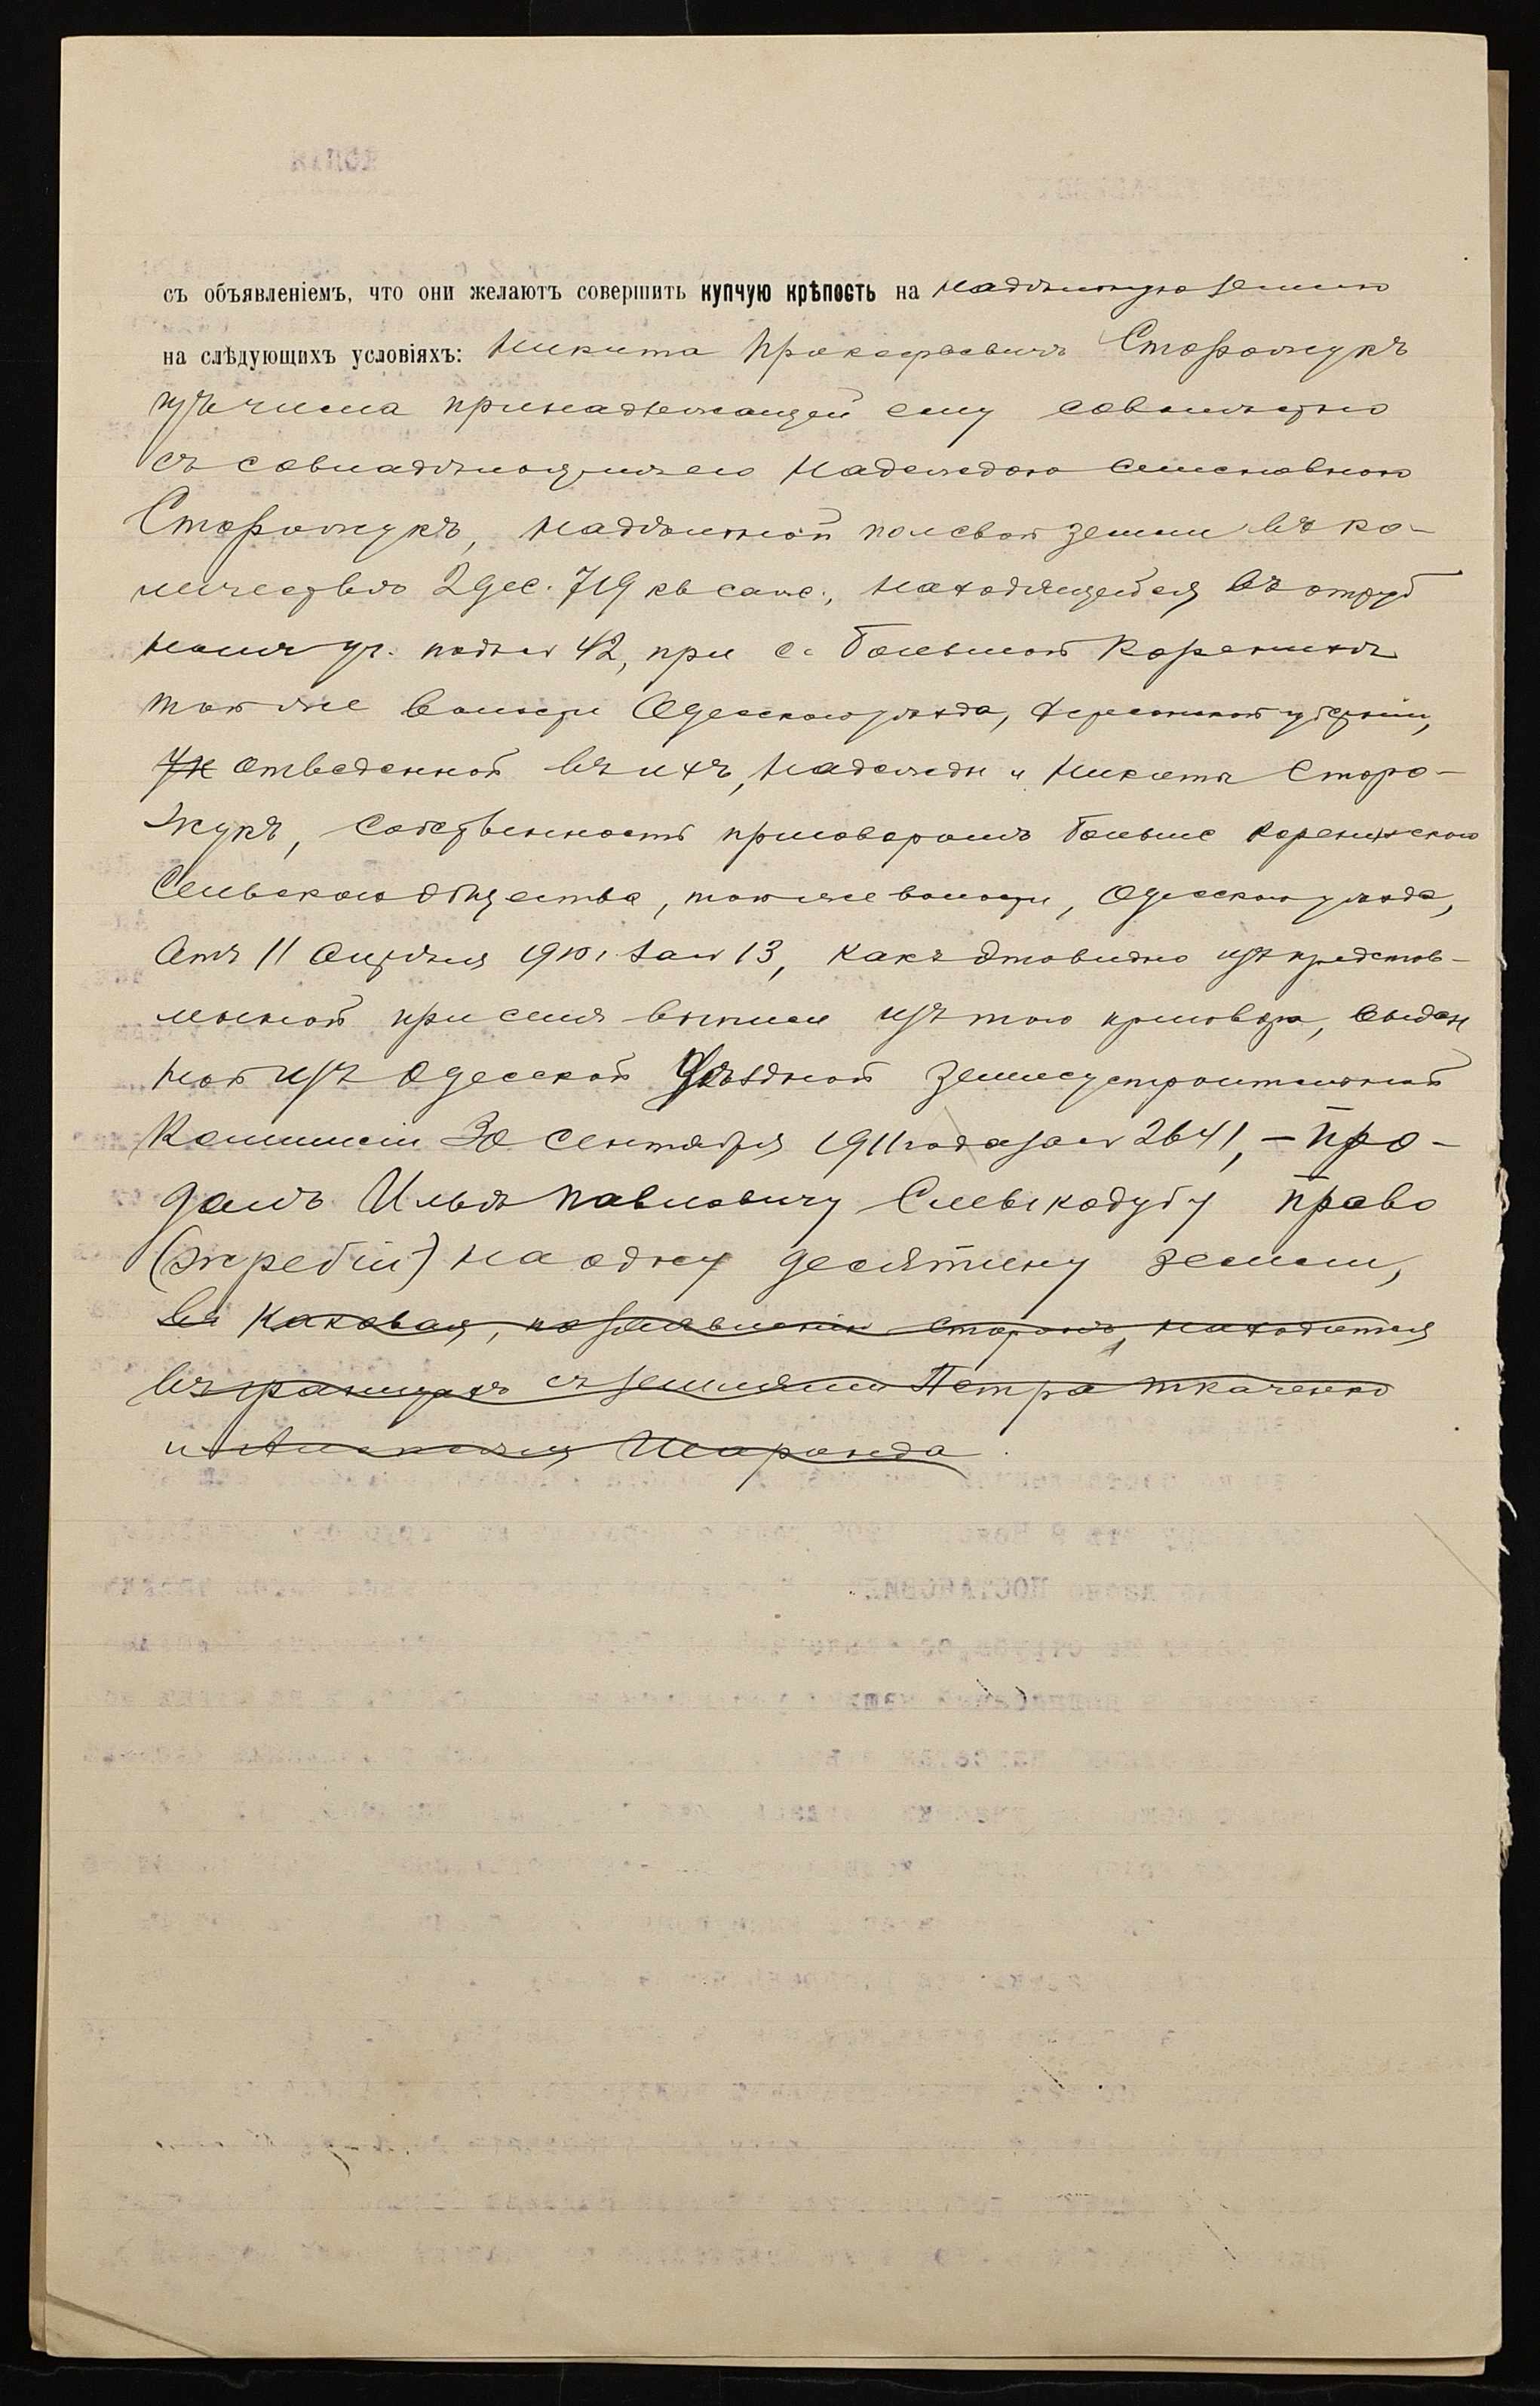 съ объявленіемъ, что они желаютъ совершить купчую крѣпость на надѣльную землю
на слѣдующихъ условіяхъ: Никита Прокофьевичъ Сторожукъ
изъ числа принадлежащей ему совмѣстно
съ совладѣлицею его Надеждою Семеновною
Сторожукъ, надѣльной полевой земли въ ко-
личествѣ 2 дес. 719 кв саж., находящейся въ отруб
номъ уч. подъ № 42, при с. Большой Коренихѣ
той же волости Одесскаго уѣзда, Херсонской губерніи,
отведенной въ ихъ, Надежды и Никиты Сторо-
жукъ, собственность приговоромъ Больше Коренихскаго
Сельскаго Общества, той же волости, Одесскаго уѣзда,
отъ 11 Апрѣля 1910 г за № 13, какъ это видно изъ представ-
ленной при семъ выписи изъ того приговора, выдан
ной изъ Одесской Уѣздной Землеустроительной
Коммисіи 30 Сентября 1911 года за № 2641, – про-
далъ Ильѣ Павловичу Слевыкодубу право
(жребій) на одну десятину земли,
каковая, по заявленію сторонъ, находится
въ границахъ съ землями Петра Ткаченко
и Алексѣя